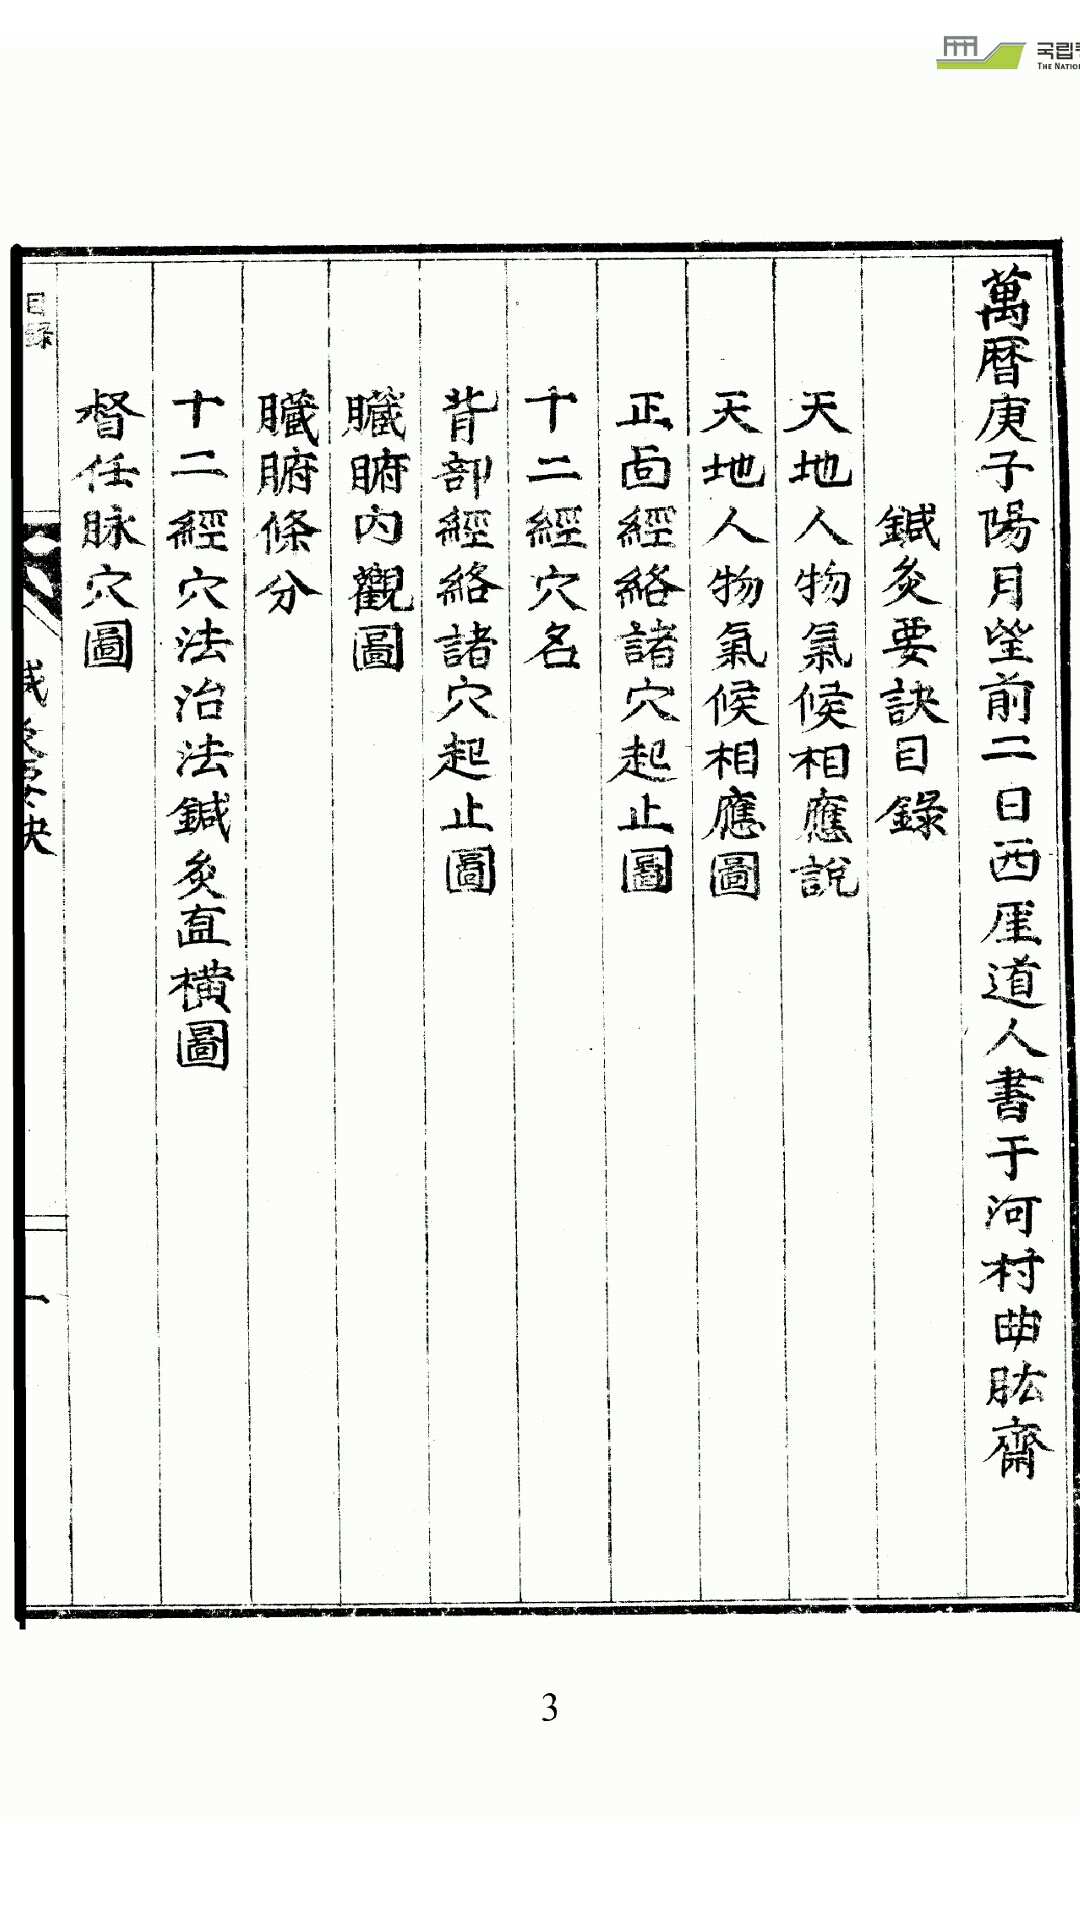 국립
THE NATION
萬曆庚子陽月望前二日西厓道人書于河村曲肱齋
鍼灸要訣目錄
天地人物氣候相應說
天地人物氣候相應圖
正面經絡諸穴起止圖
十二經穴名
背部經絡諸穴起止圖
臟腑內觀圖
臟腑條分
十二經穴法治法鍼灸直橫圖
督任脉穴圖
目錄
鍼灸要訣
一
3